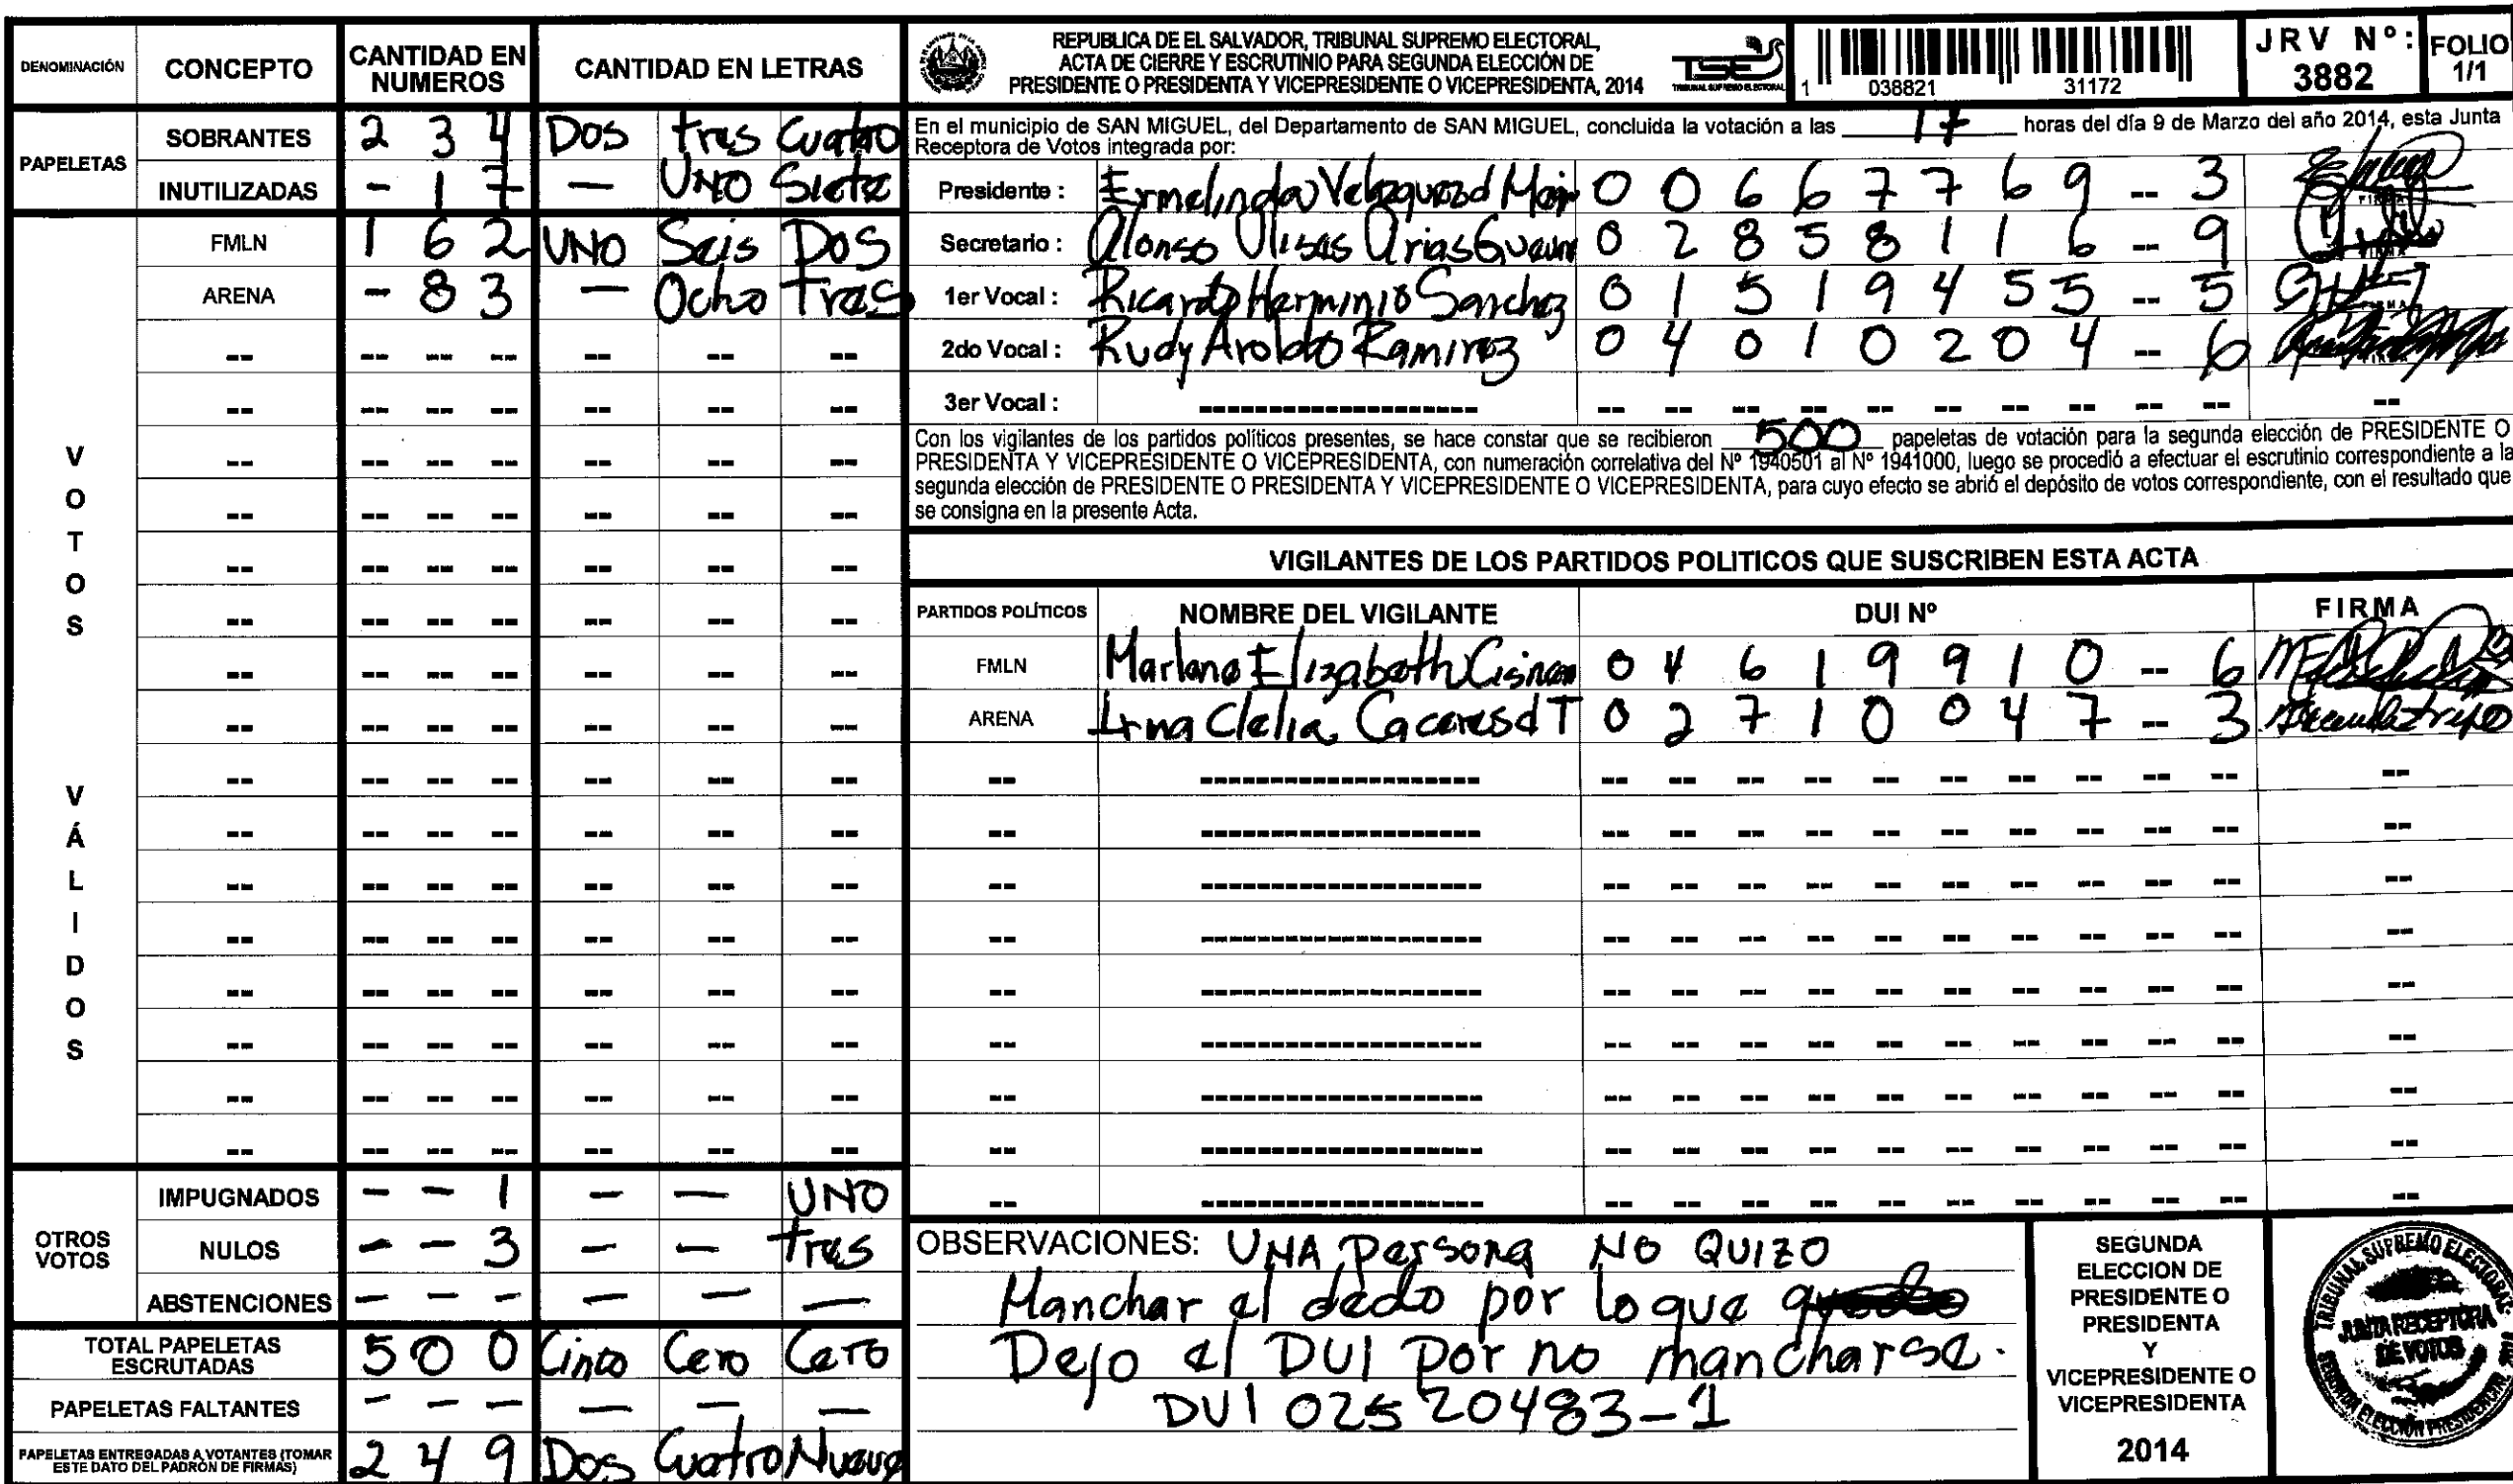 DENOMINACIÓN CONCEPTO CANTIDAD EN NUMEROS CANTIDAD EN LETRAS
PAPELETAS
SOBRANTES 2 3 4 Dos tres Cuatro
INUTILIZADAS - 1 7 — UNO Siete
VOTOS VÁLIDOS
FMLN 1 6 2 UNO Seis DOS
ARENA - 8 3 — Ocho Tres
OTROS VOTOS
IMPUGNADOS - - 1 - - UNO
NULOS - - 3 - - tres
ABSTENCIONES - - - - - -
TOTAL PAPELETAS ESCRUTADAS 5 0 0 Cinco Cero Cero
PAPELETAS FALTANTES - - - - - -
PAPELETAS ENTREGADAS A VOTANTES (TOMAR ESTE DATO DEL PADRÓN DE FIRMAS) 2 4 9 Dos Cuatro Nueve
REPUBLICA DE EL SALVADOR, TRIBUNAL SUPREMO ELECTORAL,
ACTA DE CIERRE Y ESCRUTINIO PARA SEGUNDA ELECCIÓN DE
PRESIDENTE O PRESIDENTA Y VICEPRESIDENTE O VICEPRESIDENTA, 2014
TSE
TRIBUNAL SUPREMO ELECTORAL
1 038821 31172
JRV N°: 3882
FOLIO 1/1
En el municipio de SAN MIGUEL, del Departamento de SAN MIGUEL, concluida la votación a las 17 horas del día 9 de Marzo del año 2014, esta Junta
Receptora de Votos integrada por:
Presidente : Ermelinda 0 0 6 6 7 7 6 9 -- 3
Secretario : Alonso Ulises Arias 0 2 8 5 8 1 1 6 -- 9
1er Vocal : Ricardo Herminio Sanchez 0 1 5 1 9 4 5 5 -- 5
2do Vocal : Rudy Aroldo Ramirez 0 4 0 1 0 2 0 4 -- 6
3er Vocal :
Con los vigilantes de los partidos políticos presentes, se hace constar que se recibieron 500 papeletas de votación para la segunda elección de PRESIDENTE O
PRESIDENTA Y VICEPRESIDENTE O VICEPRESIDENTA, con numeración correlativa del Nº 1940501 al Nº 1941000, luego se procedió a efectuar el escrutinio correspondiente a la
segunda elección de PRESIDENTE O PRESIDENTA Y VICEPRESIDENTE O VICEPRESIDENTA, para cuyo efecto se abrió el depósito de votos correspondiente, con el resultado que
se consigna en la presente Acta.
VIGILANTES DE LOS PARTIDOS POLITICOS QUE SUSCRIBEN ESTA ACTA
PARTIDOS POLÍTICOS NOMBRE DEL VIGILANTE DUI Nº FIRMA
FMLN Marlene Elizabeth 0 4 6 1 9 9 1 0 -- 6
ARENA Irma Clelia Caceres d T 0 2 7 1 0 0 4 7 -- 3
OBSERVACIONES: UNA Persona NO QUIZO
Manchar el dedo por lo que
Dejo el DUI Por no mancharse.
DUI 02520483-1
SEGUNDA
ELECCION DE
PRESIDENTE O
PRESIDENTA
Y
VICEPRESIDENTE O
VICEPRESIDENTA
2014
TRIBUNAL SUPREMO ELECTORAL
JUNTA RECEPTORA
DE VOTOS